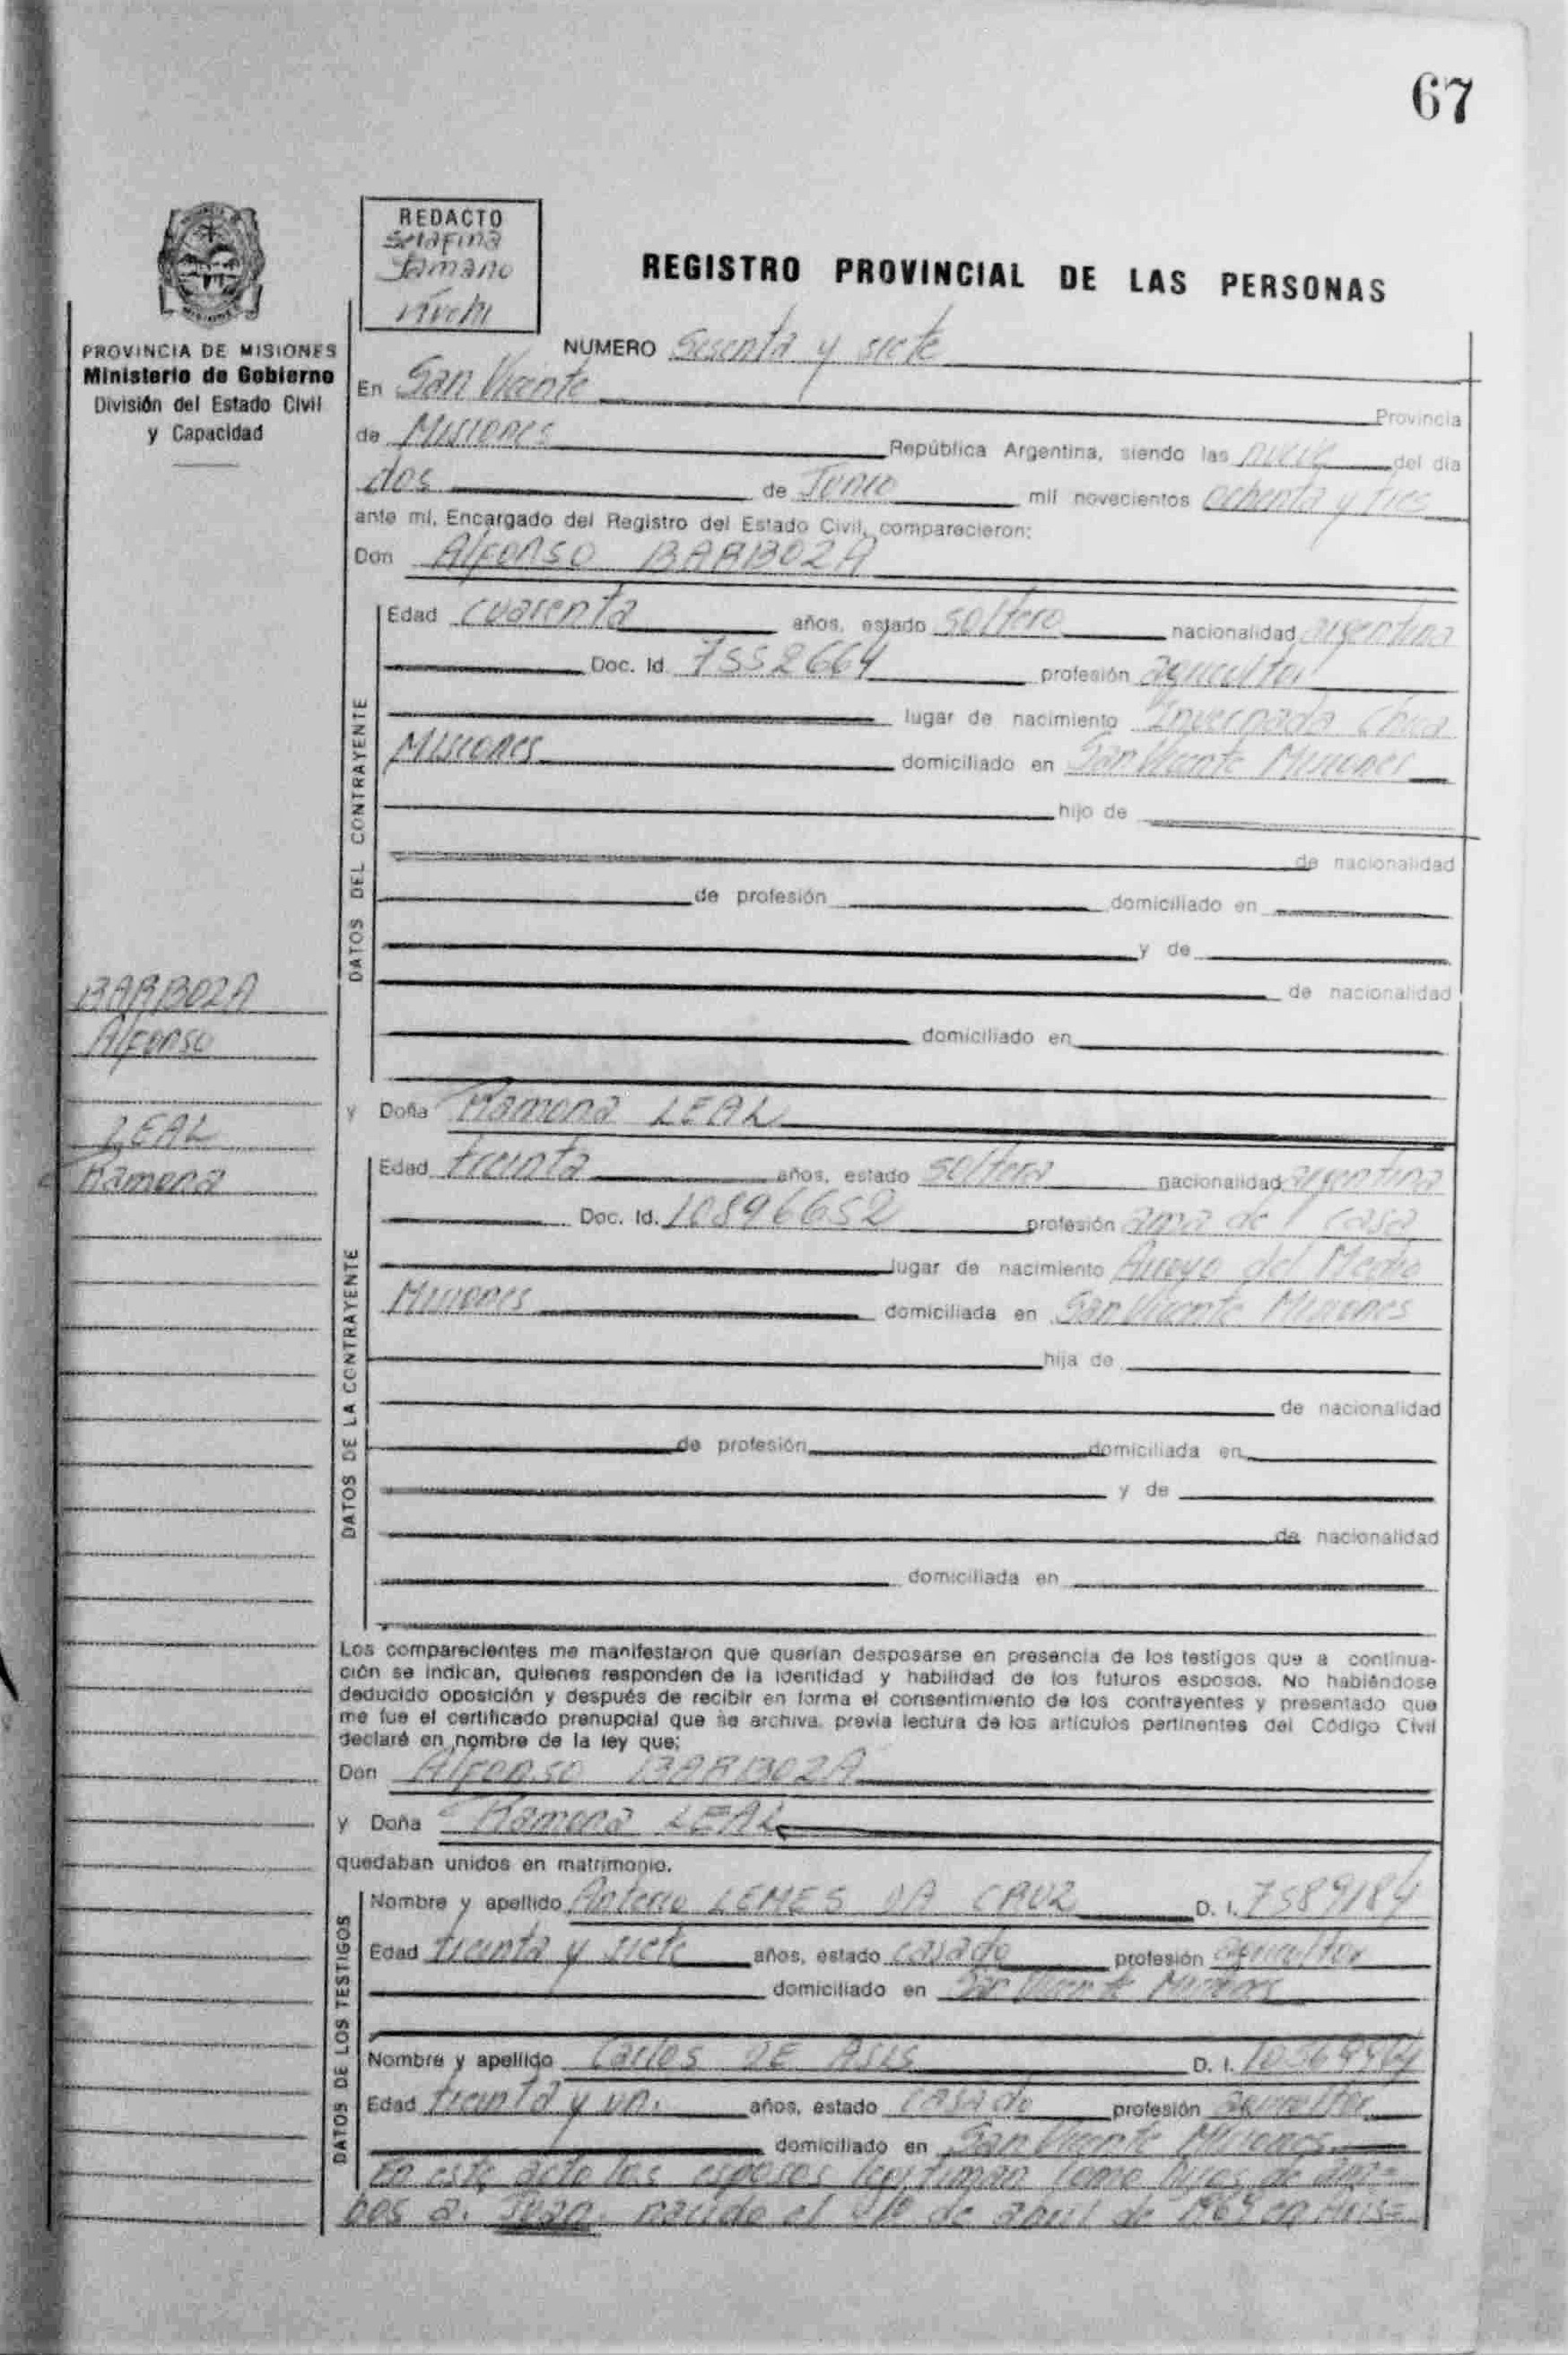 67
REDACTO
Serafina
PROVINCIA DE MISIONES
Ministerio de Gobierno
División del Estado Civil
y Capacidad
REGISTRO PROVINCIAL DE LAS PERSONAS
NUMERO Sesenta y siete
En San Vicente Provincia
de Misiones República Argentina, siendo las nueve del día
dos de Junio mil novecientos ochenta y tres
ante mí, Encargado del Registro del Estado Civil, comparecieron:
Don Alfonso BARBOZA
DATOS DEL CONTRAYENTE
Edad cuarenta años, estado soltero nacionalidad argentina
Doc. Id. 7552664 profesión agricultor
lugar de nacimiento Invernada Chica
Misiones domiciliado en San Vicente Misiones
hijo de
de nacionalidad
de profesión domiciliado en
y de
de nacionalidad
domiciliado en
BARBOZA
Alfonso
LEAL
Ramona
y Doña Ramona LEAL
DATOS DE LA CONTRAYENTE
Edad treinta años, estado soltera nacionalidad argentina
Doc. Id. 10896652 profesión ama de casa
lugar de nacimiento Arroyo del Medio
Misiones domiciliada en San Vicente Misiones
hija de
de nacionalidad
de profesión domiciliada en
y de
de nacionalidad
domiciliada en
Los comparecientes me manifestaron que querían desposarse en presencia de los testigos que a continua-
ción se indican, quienes responden de la identidad y habilidad de los futuros esposos. No habiéndose
deducido oposición y después de recibir en forma el consentimiento de los contrayentes y presentado que
me fue el certificado prenupcial que se archiva, previa lectura de los artículos pertinentes del Código Civil
declaré en nombre de la ley que:
Don Alfonso BARBOZA
y Doña Ramona LEAL
quedaban unidos en matrimonio.
DATOS DE LOS TESTIGOS
Nombre y apellido Antonio LEMES DA CRUZ D. I. 7589184
Edad treinta y siete años, estado casado profesión agricultor
domiciliado en San Vicente Misiones
Nombre y apellido Carlos DE ASIS D. I.
Edad treinta y un. años, estado casado profesión agricultor
domiciliado en San Vicente Misiones
En este acto los esposos legitiman como hijos de am=
bos a: Juan, nacido el de abril de 1969 en